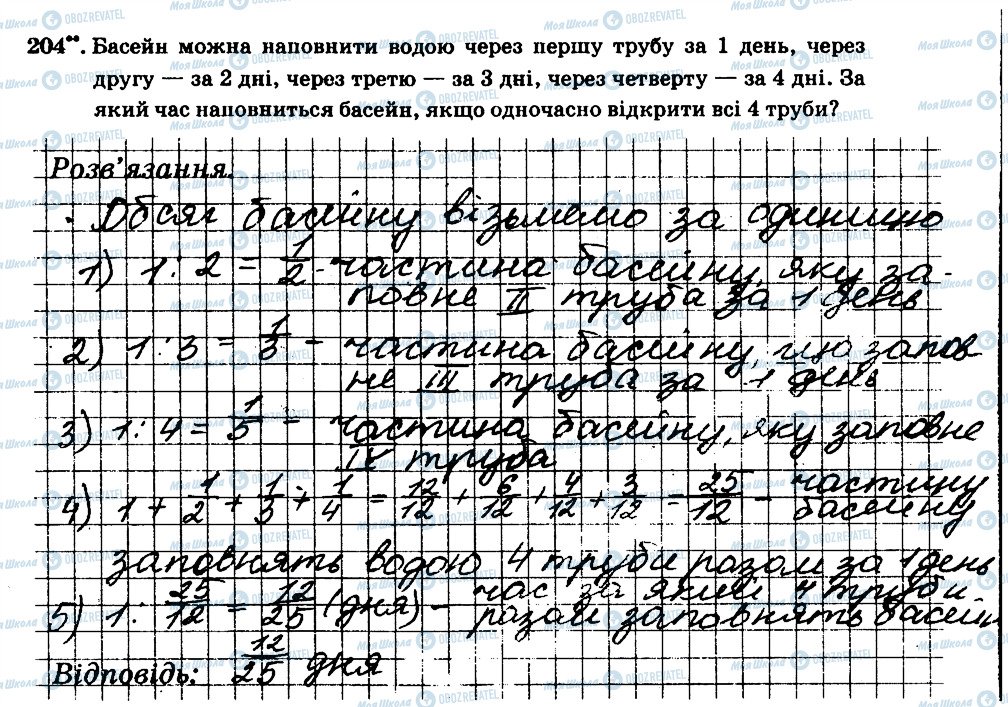 204**. Басейн можна наповнити водою через першу трубу за 1 день, через
другу — за 2 дні, через третю — за 3 дні, через четверту — за 4 дні. За
який час наповниться басейн, якщо одночасно відкрити всі 4 труби?
Розв’язання.
Обсяг басейну візьмемо за одиницю
1) 1 : 2 = 1/2 - частина басейну, яку за-
повне II труба за 1 день
2) 1 : 3 = 1/3 - частина басейну, що запов
не III труба за 1 день
3) 1 : 4 = 1/5 - частина басейну, яку заповне
IV труба
4) 1 + 1/2 + 1/3 + 1/4 = 12/12 + 6/12 + 4/12 + 3/12 = 25/12 - частину
басейну
заповнять водою 4 труби разом за 1 день
5) 1 : 25/12 = 12/25 (дня) - час за який 4 труби
разом заповнять басейн
Відповідь: 12/25 дня